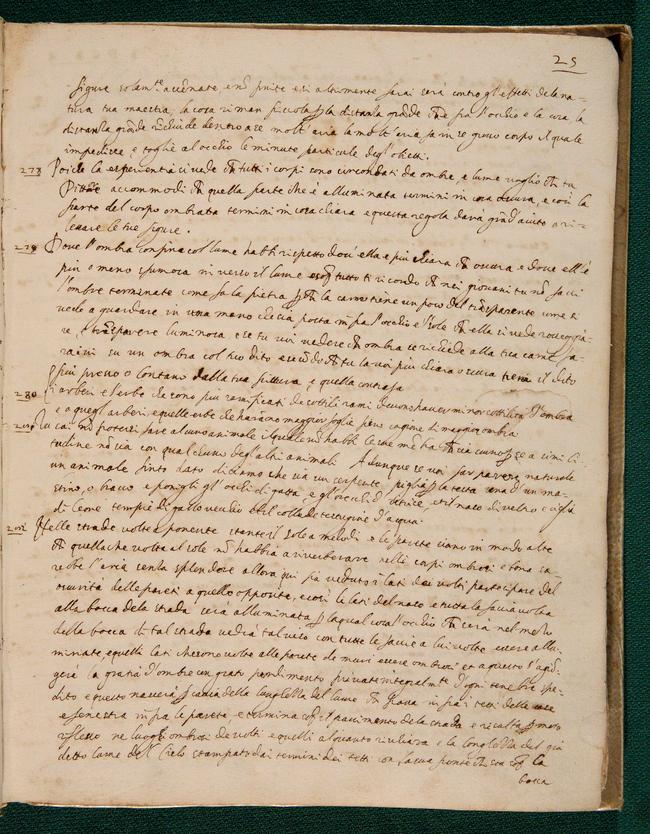 25
figure solam.te accennate, e nõ finite e se altrimente farai sarà contro gl'effetti de la na-
tura tua maestra, la cosa riman piccola p la distanza grãde che è fra l'occhio e la cosa, la
distanza grãde rinchiude dentro a se molt'aria la molt'aria fa in se grosso corpo il quale
impedisce, e toglie al occhio le minute particule degl'obietti.
278 Poiche la esperientia si vede ch tutti i corpi sono circondati da ombre, e lume voglio ch tu
Pittore accommodi ch quella parte che è alluminata termini in cosa oscura, e così la
parte del corpo ombrata termini in cosa chiara e questa regola darà grãd'aiuto a ri-
levare le tue figure.
279 Dove l'ombra confina col lume habbi rispetto dov'ella è più chiara, ch oscura, e dove ell'è
più o meno sfumosa inverso il lume e sopra tutto ti ricordo ch nei giovani tu nõ facci
l'ombre terminate come fa la pietra pch la carne tiene un poco del trasparente come si
vede a guardare in una mano che sia posta infra l'occhio e 'l sole ch ella si vede rosseggia-
re, e trasparere luminosa, e se tu voi vedere ch ombra se richiede alla tua carne fa-
rai ivi su un ombra col tuo dito e secõdo ch tu la voi più chiara o scura tieni il dito
più presso o lontano dalla tua pittura, e quella contrafà
280 Gl'arberi e l'erbe che sono più ramificati de sottili rami devono haver minor oscurità d'ombra
e quegl'arberi, e quelle erbe che harãno maggior foglie fieno cagione di maggior ombra
Tu sai nõ potersi fare alcuno animale il quale nõ habbi le sue mẽbra ch sia cunosse a simili-
tudine nõ sia con qualcuno degl'altri animali. Adunque se voi far parere naturale
un animale finto dato diciamo che sia un serpente, piglia p la testa una d'un ma-
stino, o bracco e ponigli gl'occhi di gatta, e gl'orecchi d'istrice, et il naso di veltro e ciglia
di leone tempie di gallo vecchio et il collo de testugine d'acqua.
Nelle strade volte a ponente stante il sole a mezodì, e le parete siano in modo alte
ch quella che volta al sole nõ habbia a riverberare nelli corpi ombrosi e bona sa-
rebbe l'aria senza splendore allora qui fia veduto i lati dei volti participare del
oscurità delle pareti a quello opposite, e così le lati del naso e tutta la faccia volta
alla bocca dela strada sarà alluminata p la qual cosa l'occhio ch serà nel mezzo
della bocca di tal strada vedrà tal viso con tutte le faccie a lui volte essere allu-
minate, e quelli lati che sono volte alle parete de muri essere ombrosi et a questo s'agiõ-
gerà la gratia d'ombre con grato perdimento private integralm.te d'ogni tenebre spe-
dito e questo nascerà p causa della longhezza del lume ch passa infra i tetti delle case
e penetra infra le pareta, e termina sop.a il pavimento della strada e risalta p moto
riflesso ne luoghi ombrosi de volti e quelli alquanto rischiara e la longhezza del già
detto lume del Cielo stampato dai termini dei tetti con la sua fronte ch sta sop.a la
bocca